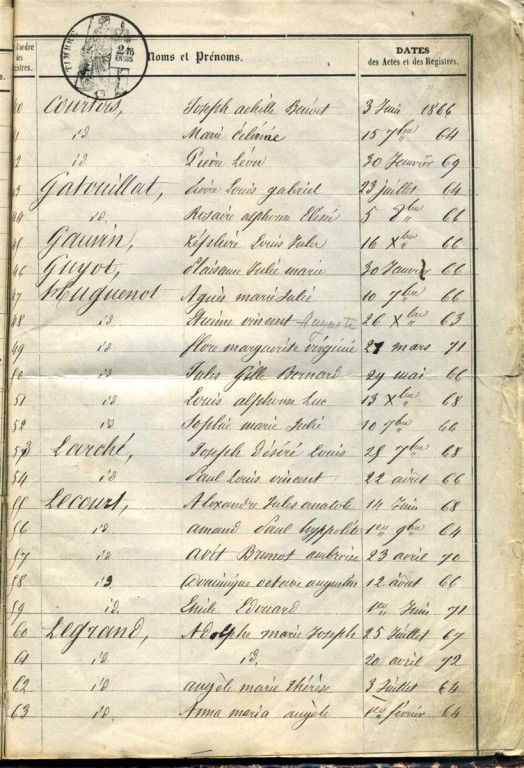 d'ordre des Registres. Noms et Prénoms. DATES des Actes et des Registres.
TIMBRE
40 Courtois, Joseph achille Benoit 3 Juin 1866
1 id Marie Célinie 15 7bre 64
2 id Pierre Léon 30 Janvier 69
43 Gatouillat, Louis gabriel 23 juillet 64
44 id Rosaire alphonse 5 8bre 66
45 Gauvin, Zéphire Louis Jules 16 Xbre 66
46 Guyot, Plaisance Julie marie 30 Janvier 66
47 Huguenot Agnès marie Julie 10 7bre 66
48 id vincent Auguste 26 Xbre 63
49 id flore marguerite Virginie 27 mars 71
50 id Jules Gille Bernard 29 mai 66
51 id Louis alphonse Luc 13 Xbre 68
52 id Sophie marie Julie 10 7bre 66
53 Larché, Joseph Désiré Louis 28 7bre 68
54 id Paul Louis vincent 22 août 66
55 Lecourt, Alexandre Jules anatole 14 Juin 68
56 id amand Paul hyppolite 1er 9bre 64
57 id avit Brunot ambroise 23 avril 70
58 id Dominique octave augustin 12 août 66
59 id Emile Edouard 1er Juin 71
60 Legrand, Adolphe marie Joseph 25 Juillet 67
61 id id. 20 avril 72
62 id angèle marie thérèse 3 Juillet 64
63 id Anna maria angèle 1er février 64